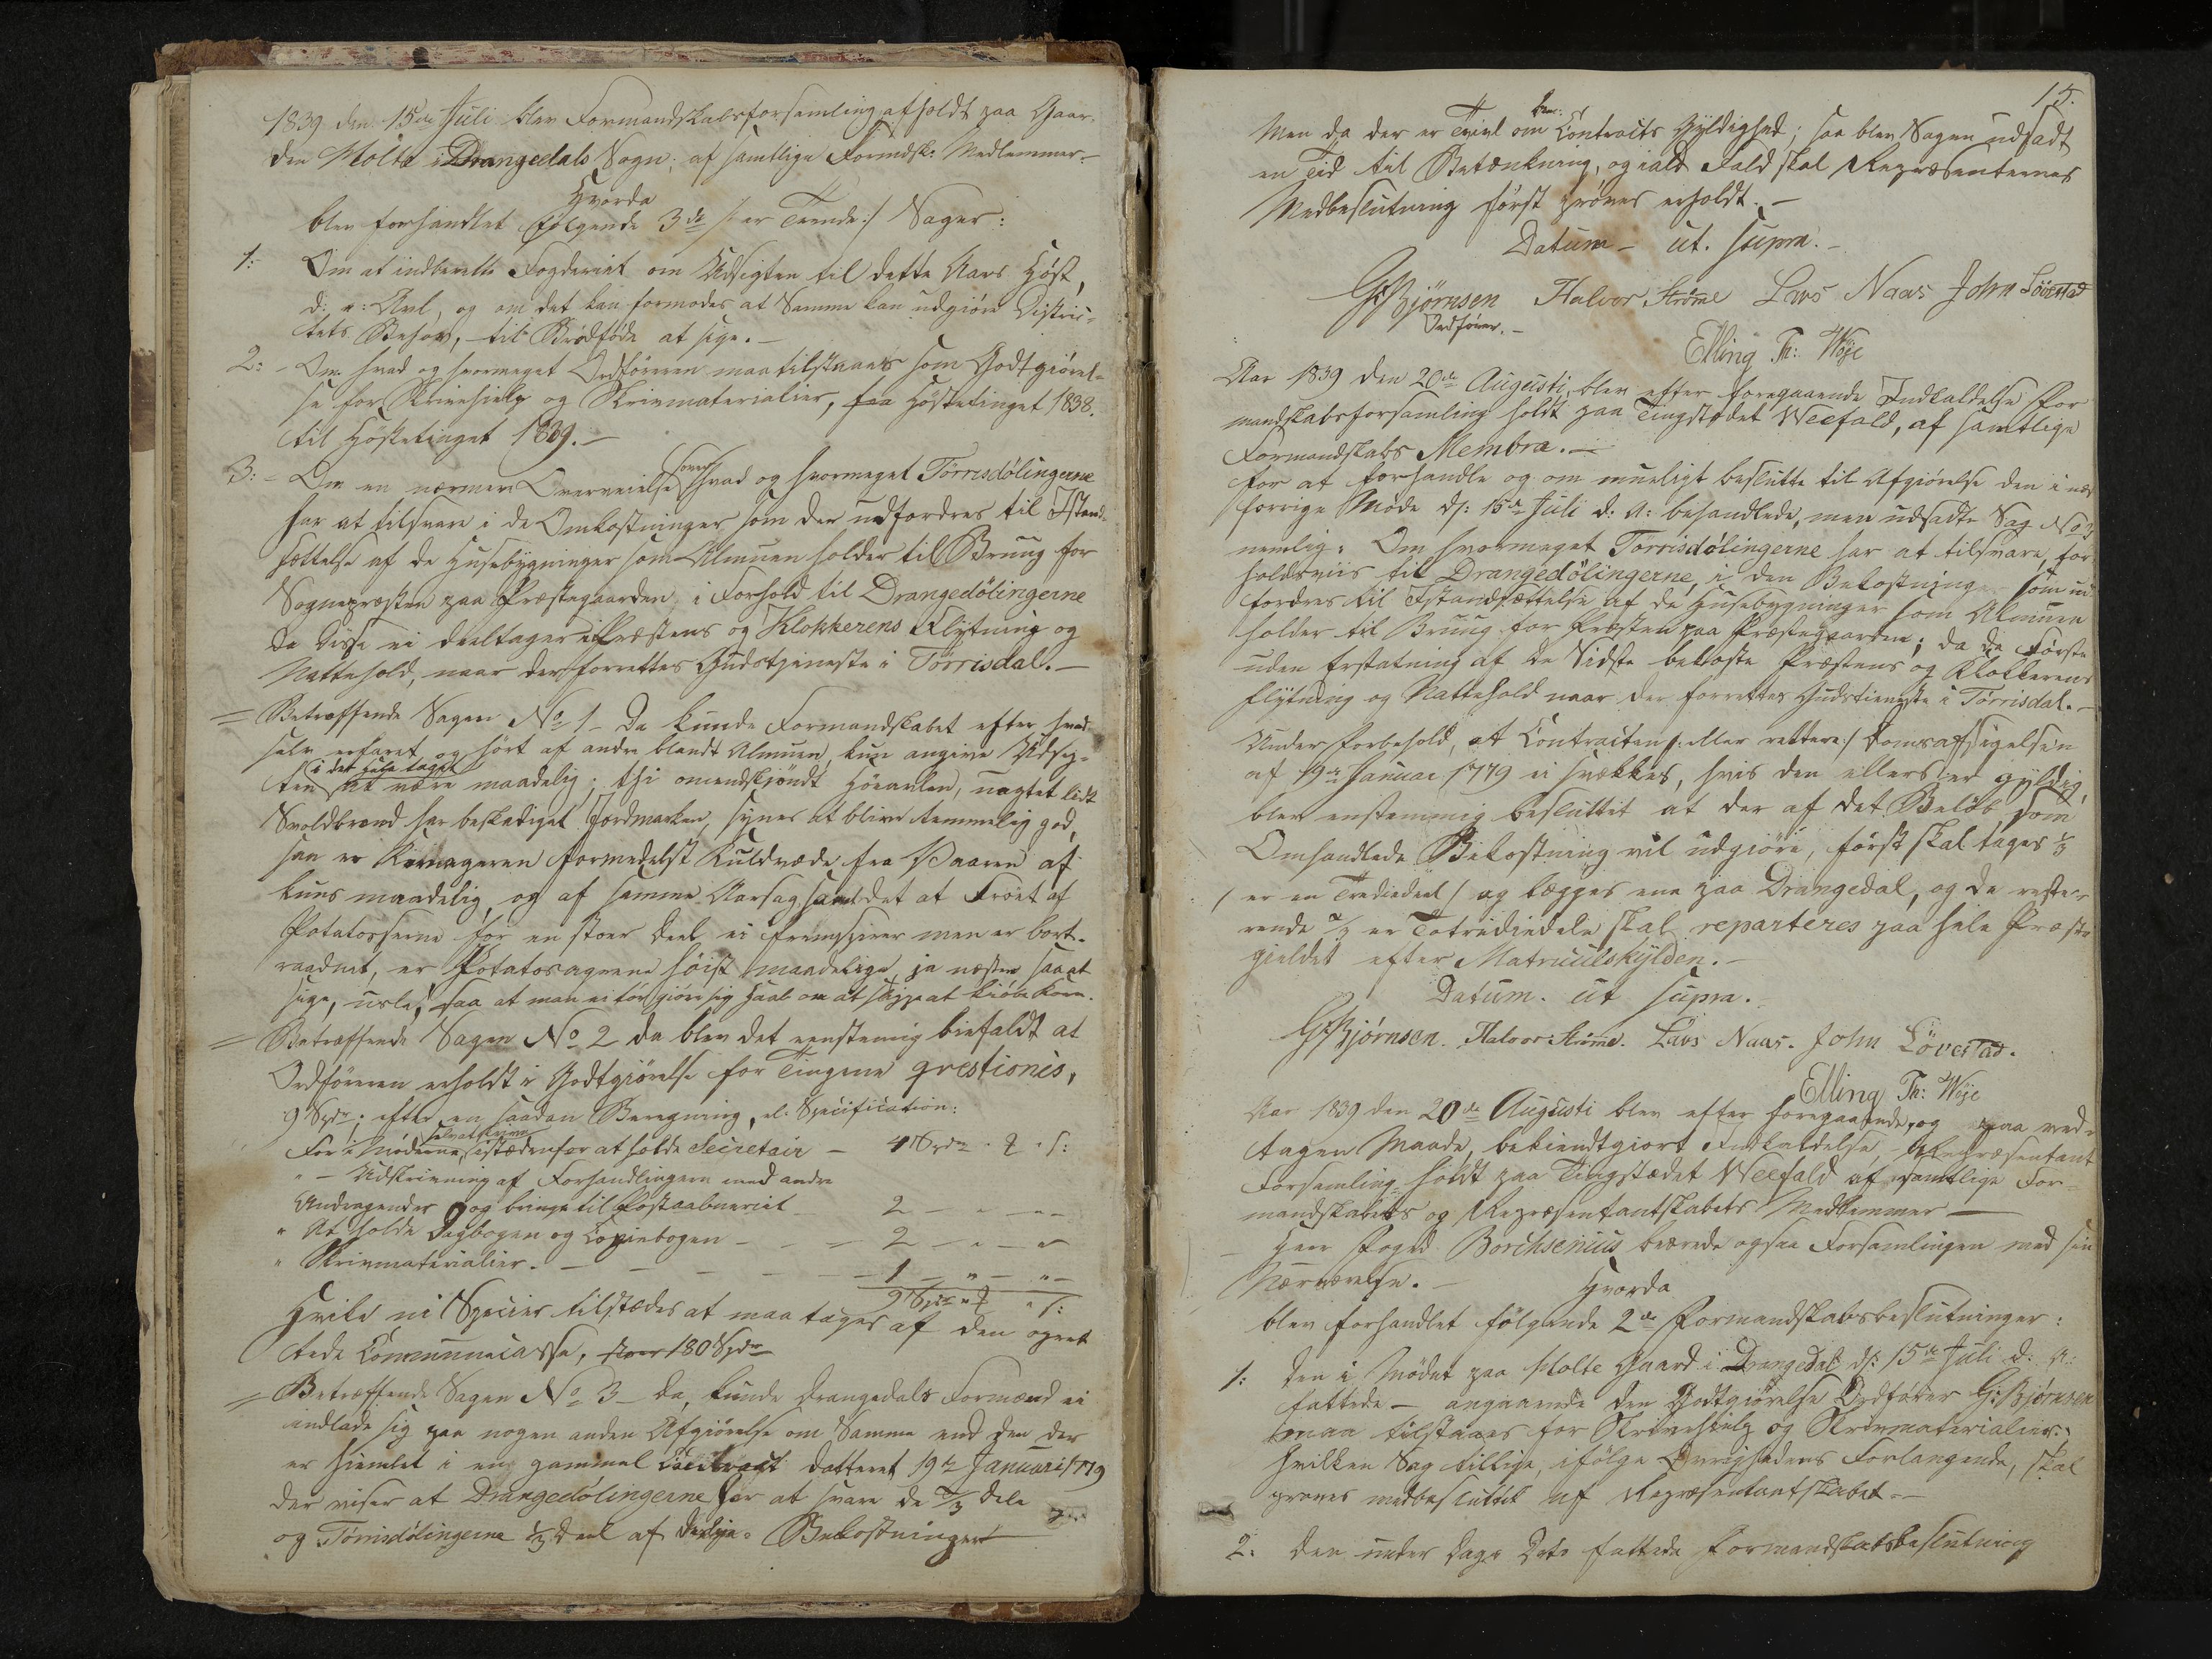 1839 den 15de Juli blev Formandskabsforsamling afholdt paa Gaar-
den Molte i Drangedals Sogn; af samtlige Formdsk: Medlemmer.-
Hvorda
blev forhandlet følgende 3de /: er Trende :/ Sager:
1: Om at indberette Fogderiet om Udsigten til dette Aars Høst,
d: v: Avl, og om det kan formodes at Samme kan udgiøre Distric-
tets Behov, til Brødføde at sige. -
2: - Om hvad og hvormeget Ordføreren maa tilstaaes som Godtgiørel-
se for Skrivehielp og Skrivmaterialier, fra Høstetinget 1838.
til Høstetinget 1839. -
3: - Om en nærmere Overveielse hvad og hvormeget Tørrisdølingerne
har at tilsvare i de Omkostninger som der udfordres til Istand-
sættelse af de Husebygninger som Almuen holder til Bruug for
Sognepræsten paa Præstegaarden, i Forhold til Drangedølingerne
da disse ei deeltager i Præstens og Klokkerens Flytning og
Nattehold, naar der forrettes Gudstjeneste i Tørrisdal. -
= Betræffende Sagen No 1 - Da kunde Formandskabet efter hvad
selv erfaret og hørt af andre blandt Almuen, kun angive Udsig-
i det hele taget
ten at være maadelig; thi omendskjøndt Høeavlen, uagtet lidt
Svoldbrand har beskadiget Jordmarken, synes at blive temmelig god,
saa er Kornageren formedelst Kuldvæde fra Vaaren af
kuns maadelig, og af samme Aarsag samt det at Frøet af
Potatoserne for en stoer Deel ei fremspirer men er bort-
raadnet, er Potatosagrene høist maadelige, ja næsten saa at
sige, usle, saa at man ei tør giøre sig Haab om at slippe at kiøbe Korn.
= Betræffende Sagen No 2 da blev det eenstemig biefaldt at
Ordføreren erholdt i Godtgiørelse for Tingene qvestionis,
9 Spdr; efter en saadan Beregning, el. Specification:
selv at skrive
For i Møderne, istædenfor at holde Secretair - 4 Spdr
" - Udskrivning af Forhandlingern med andre
Andragender og bringe til Postaabneriet - 2 - " - "
" At holde Dagbogen og Copiebogen - 2 - " - "
" Skrivmaterialier. - 1 - " - "
9 Spdr
Hvilke ni Specier tilstædes at maa tages af den opret-
tede Communecasse, 180 Spdr
= Betræffende Sagen No 3 - da, kunde Drangedals Formænd ei
indlade sig paa nogen anden Afgiørelse om Samme end den der
er hiemlet i en gammel Contract datteret 19de Januari 1779
der viser at Drangedølingerne har at svare de 2/3 Dele
og Tørrisdølingerne 1/3 Deel af deslige Bekostninger
15.
Men da der er Tvivl om Contracts Gyldighed; saa blev Sagen udsadt
en Tid til Betænkning, og ialt Fald skal Repræsenternes
Medbeslutning først prøves erholdt. -
Datum - ut. supra. -
G: Bjørnsen Halvor Strøme Lars Naas John Löverstad
Ordfører. -
Elling Th: Wöje
Aar 1839 den 20de Augusti, blev efter foregaaende Indkaldelse For
mandskabsforsamling holdt paa Tingstædet Weefald, af samtlige
Formandskabs Membra. -
For at forhandle og om mueligt beslutte til Afgiørelse den i næs
forrige Møde d: 15de Juli d: A: behandlede, men udsadte Sag No 3
nemlig: Om hvormeget Tørrisdølingerne har at tilsvare, for
holdsviis til Drangedølingerne, i den Bekostning som ud
fordres til Istandsættelse af de Husebygninger som Almuen
holder til Bruug for Præsten paa Præstegaarden; da de Første
uden Erstatning af de Sidste bekoste Præstens og Klokkerens
Flytning og Nattehold naar der forrettes Gudstieneste i Tørrisdal. -
Under Forbehold, at Contracten /: eller rettere :/ Domsafsigelsen
af 19de Januar 1779 ei svækkes, hvis den ellers er gyldig,
blev enstemmig besluttet at der af det Beløb som
Omhandlede Bekostning vil udgiøre, først skal tages 1/3
/ er en Trediedeel / og lægges ene paa Drangedal, og de reste-
rende 2/3 er Totrediedele skal reparteres paa hele Præste
gieldet efter Matriculskylden. -
Datum. ut supra.
G: Bjørnsen. Halvor Strøme. Lars Naas. John Löverstad.
Elling Th: Wöje
Aar 1839 den 20de Augusti blev efter foregaaende, og paa ved-
tagen Maade, bekiendtgiort Indkaldelse, Repræsentant
Forsamling holdt paa Tingstædet Weefald af samtlige For-
mandskabets og Repræsentantskabets Medlemmer -
- Herr Foged Borchsenius beærede ogsaa Forsamlingen med sin
Nærværelse. -
Hvorda
blev forhandlet følgende 2de Formandskabsbeslutninger:
1: Den i Mødet paa Molte Gaard i Drangedal d: 15de Juli d: A:
fattede - angaaende den Godtgiørelse Ordfører G: Bjørnsen
maa tilstaaes for Skrivehielp og Skrivmaterialier:
hvilken Sag tillige, ifølge Øvrighedens Forlangende, skal
prøves medbesluttet af Repræsentantskabet. -
2: Den under Dags Dato fattede Formandskabsbeslutning